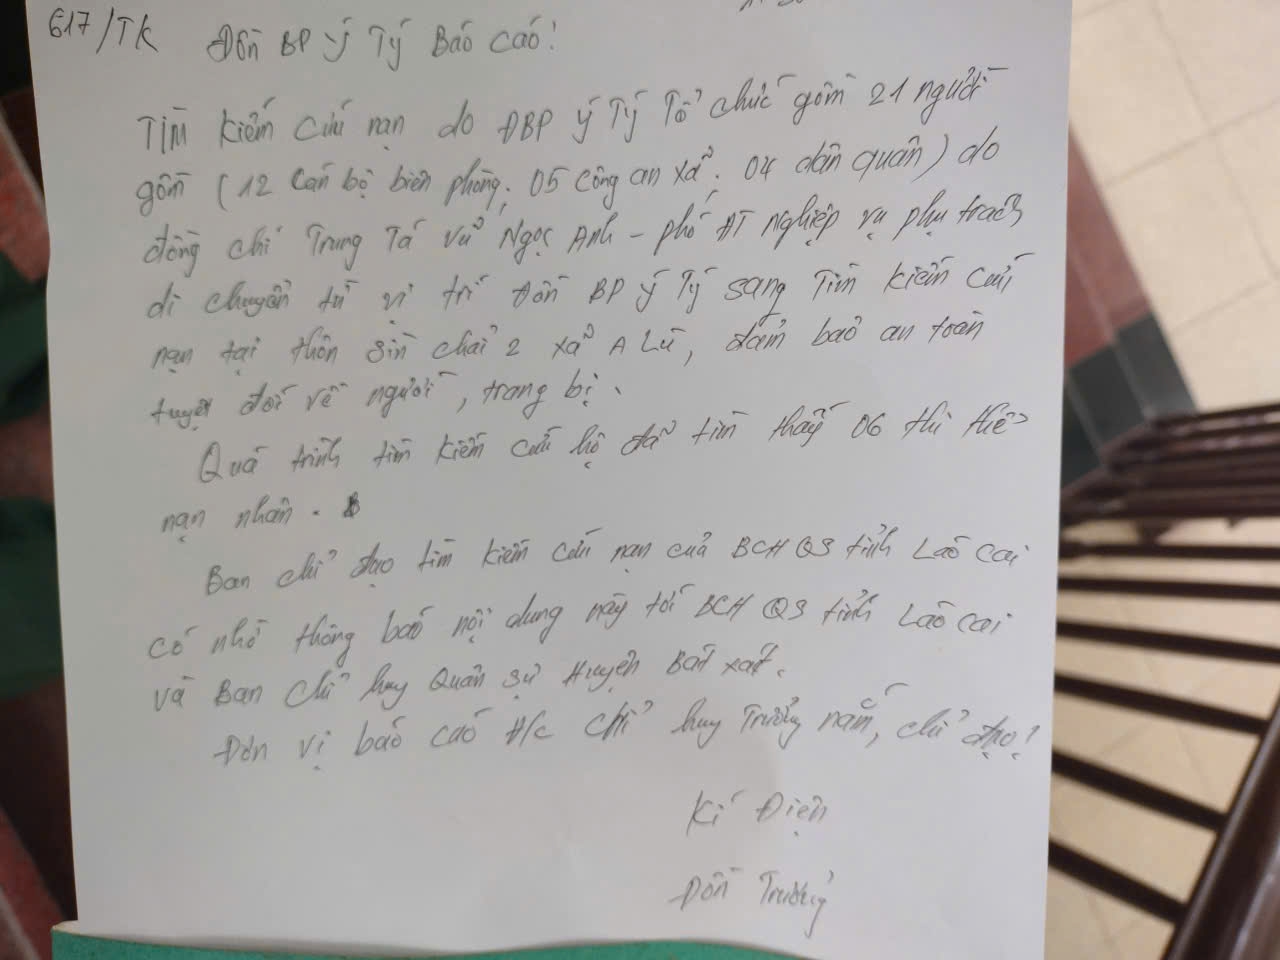 617/TK
Đồn BP Ý Tý Báo cáo!
Tìm kiếm cứu nạn do ĐBP Ý Tý Tổ chức gồm 21 người
gồm (12 Cán bộ biên phòng; 05 công an xã; 04 dân quân) do
đồng chí Trung Tá Vũ Ngọc Anh - phó ĐT Nghiệp vụ phụ trách
di chuyển từ vị trí Đồn BP Ý Tý sang Tìm kiếm cứu
nạn tại thôn Sín chải 2 xã A Lù, đảm bảo an toàn
tuyệt đối về người, trang bị.
Quá trình tìm kiếm cứu hộ đã tìm thấy 06 thi thể
nạn nhân.
Ban chỉ đạo tìm kiếm cứu nạn của BCH QS tỉnh Lào Cai
có nhờ thông báo nội dung này tới BCH QS tỉnh Lào Cai
và Ban chỉ huy Quân sự Huyện Bát Xát.
Đơn vị báo cáo Đ/c Chỉ huy Trưởng nắm, chỉ đạo!
Kí Điện
Đồn Trưởng